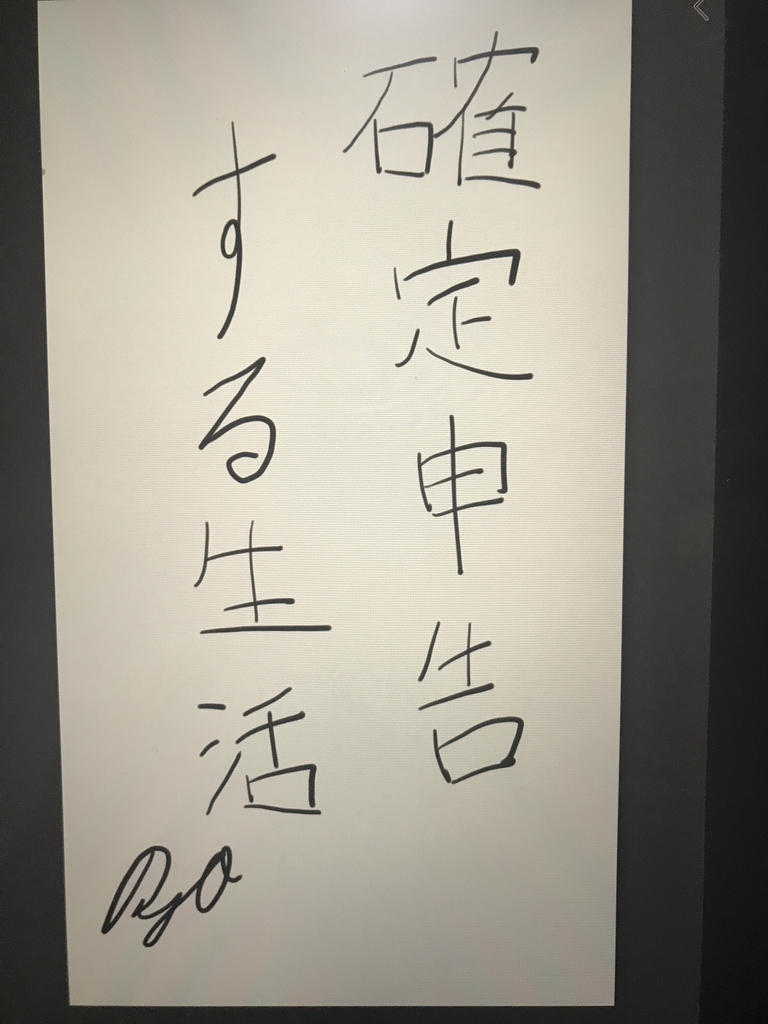 確定申告
する生活
Ryo